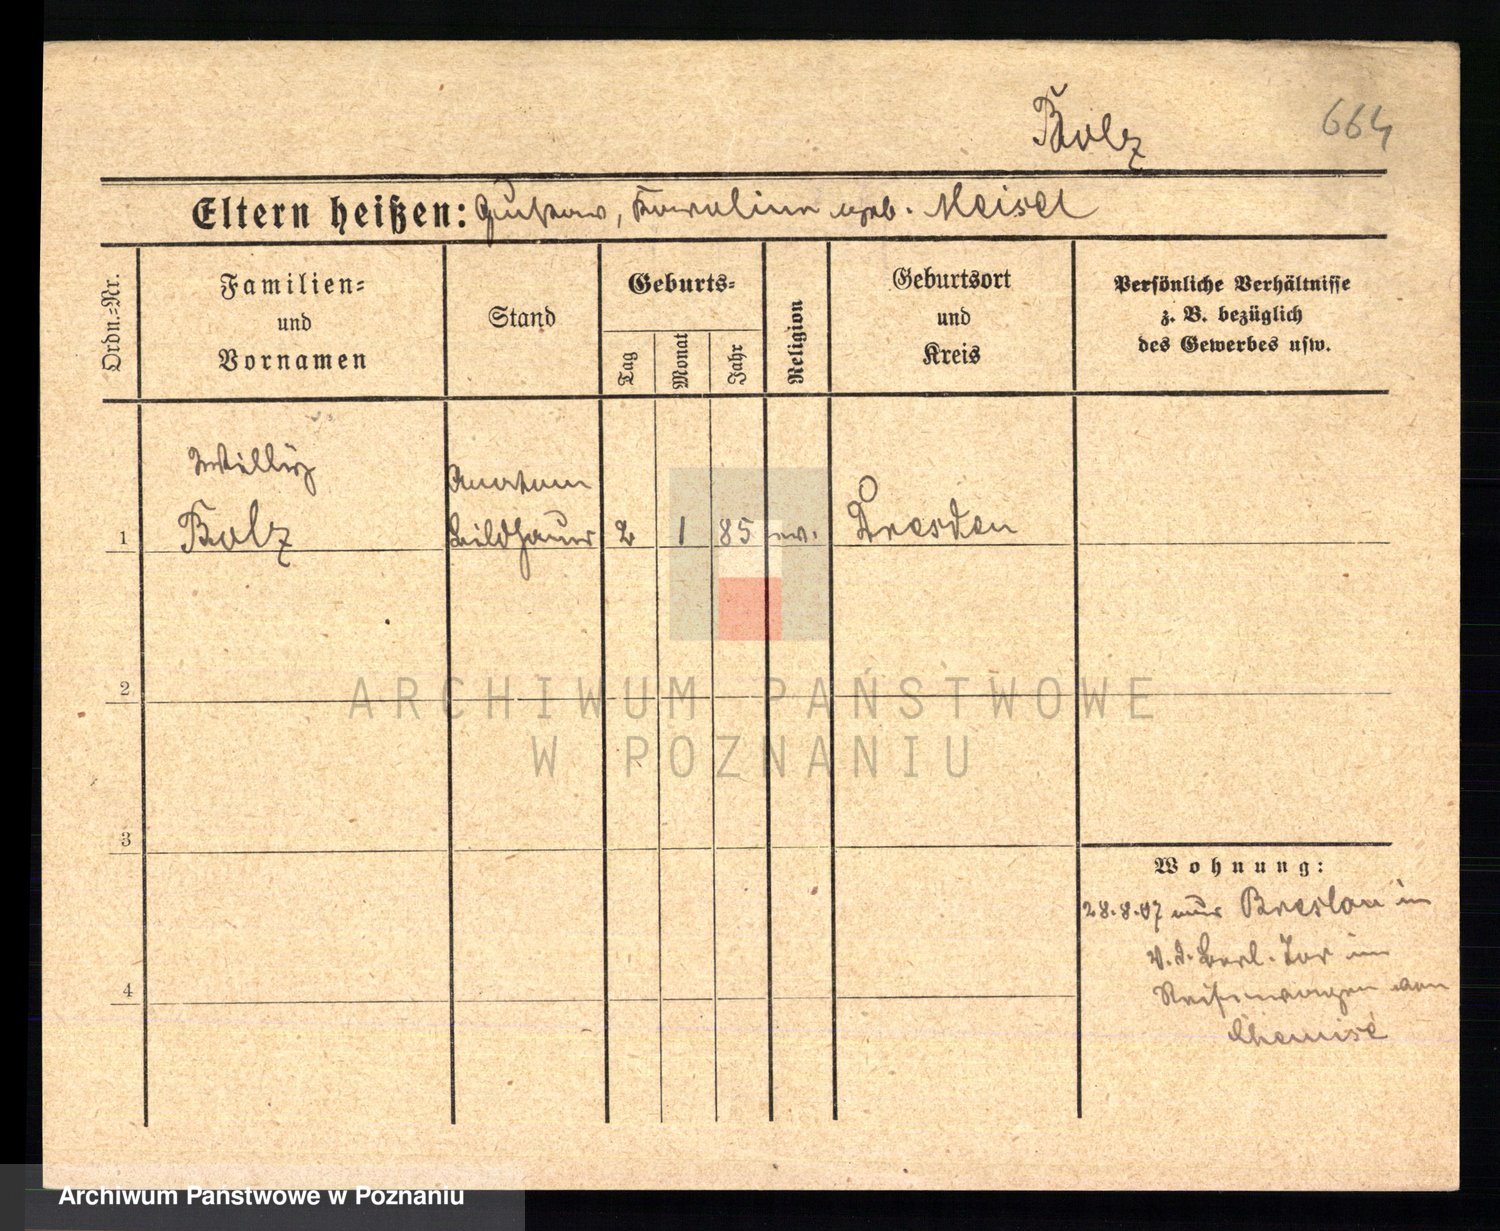 Bolz
664
Eltern heißen: Gustav, Karoline geb. Meisel
Ordn.=Nr.
Familien=
und
Vornamen
Stand
Geburts=
Tag
Monat
Jahr
Religion
Geburtsort
und
Kreis
Persönliche Verhältnisse
z. B. bezüglich
des Gewerbes usw.
Willy
Bolz
Anatom
Bildhauer
1
2
1
85
ev.
Dresden
2
3
4
Wohnung:
28.8.07 aus Breslau in
v. d. Berl. Tor im
Reisewagen von
ARCHIWUM PAŃSTWOWE
W POZNANIU
Archiwum Państwowe w Poznaniu